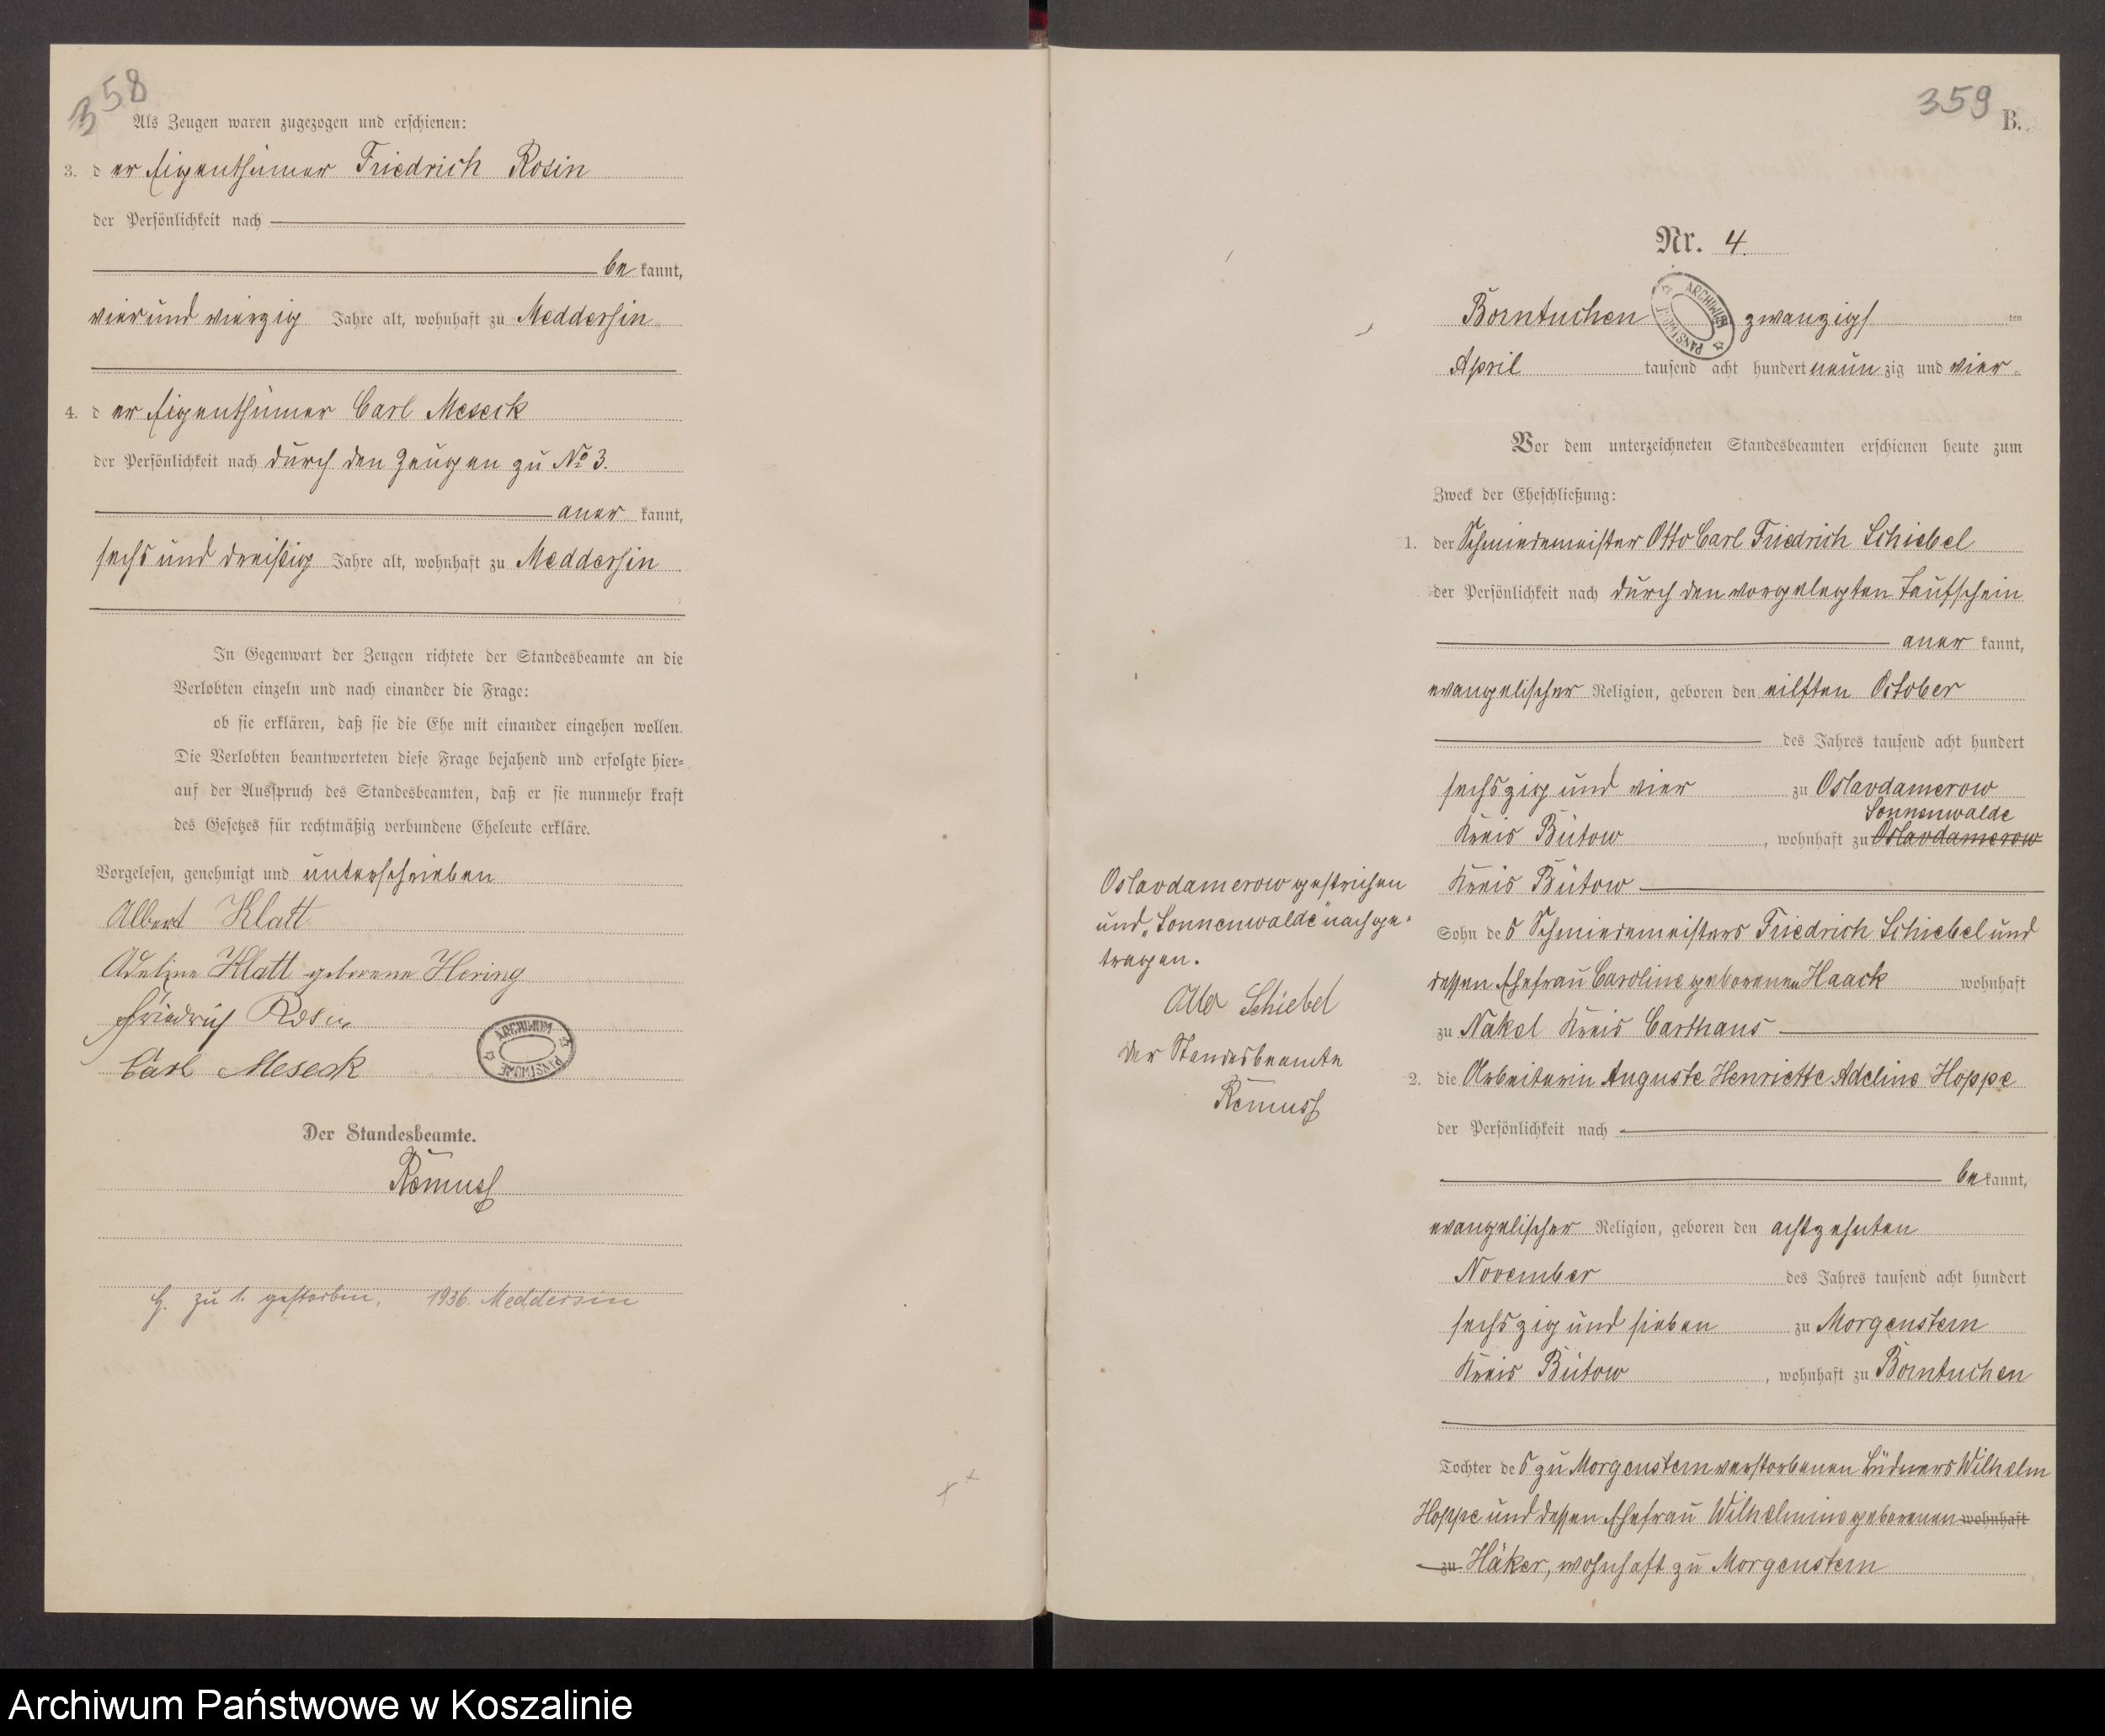 358
Als Zeugen waren zugezogen und erschienen:
3. d er Eigenthümer Friedrich Rosin
der Persönlichkeit nach
be kannt,
vier und vierzig Jahre alt, wohnhaft zu Meddersin
4. d er Eigenthümer Carl Meseck
der Persönlichkeit nach durch den Zeugen zu No 3.
aner kannt,
sechs und dreißig Jahre alt, wohnhaft zu Meddersin
In Gegenwart der Zeugen richtete der Standesbeamte an die
Verlobten einzeln und nach einander die Frage:
ob sie erklären, daß sie die Ehe mit einander eingehen wollen.
Die Verlobten beantworteten diese Frage bejahend und erfolgte hier-
auf der Ausspruch des Standesbeamten, daß er sie nunmehr kraft
des Gesetzes für rechtmäßig verbundene Eheleute erkläre.
Vorgelesen, genehmigt und unterschrieben
Albert Klatt
Adeline Klatt geborene Hering
Friedrich Rosin
Carl Meseck
ARCHIWUM PAŃSTWOWE
Der Standesbeamte.
Remuss
zu 1. gestorben, 1936. Meddersin
359
B.
Nr. 4.
Borntuchen zwanzigs ten
ARCHIWUM PAŃSTWOWE
April tausend acht hundert neun zig und vier
Vor dem unterzeichneten Standesbeamten erschienen heute zum
Zweck der Eheschließung:
1. der Schmiedemeister Otto Carl Friedrich Schiebel
der Persönlichkeit nach durch den vorgelegten Taufschein
aner kannt,
evangelischer Religion, geboren den eilften October
des Jahres tausend acht hundert
sechszig und vier zu Oslavdamerow
Sonnenwalde
Kreis Bütow, wohnhaft zu Oslavdamerow
Kreis Bütow
Sohn de s Schmiedemeisters Friedrich Schiebel und
dessen Ehefrau Caroline geborenen Haack wohnhaft
zu Nakel Kreis Carthaus
2. die Arbeiterin Auguste Henriette Adeline Hoppe
der Persönlichkeit nach
be kannt,
evangelischer Religion, geboren den achtzehnten
November des Jahres tausend acht hundert
sechszig und sieben zu Morgenstern
Kreis Bütow, wohnhaft zu Borntuchen
Tochter de s zu Morgenstern verstorbenen Büdners Wilhelm
Hoppe und dessen Ehefrau Wilhelmine geborenen wohnhaft
zu Häker, wohnhaft zu Morgenstern
Oslavdamerow gestrichen
und „Sonnenwalde" nachge-
tragen.
Otto Schiebel
Der Standesbeamte
Remuss
Archiwum Państwowe w Koszalinie